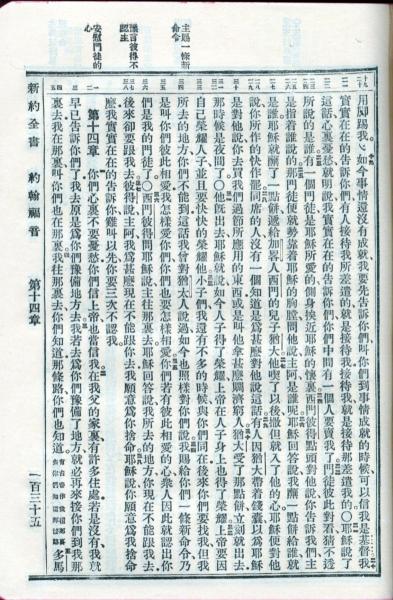 主賜一條新
命令
預言彼得不
認主
安慰門徒的
心
用脚踢我。如今事情還沒有成就、我要先告訴你們、叫你們到事情成就的時候、可以信我是基督。我
實實在在的告訴你們、有人接待我所差遣的、就是接待我、接待我、就是接待那差遣我的。○耶穌說了
這話、心裏憂愁、就明說、我實實在在的告訴你們、你們中間有一個人要賣我了。門徒彼此對看、猜不透
所說的是誰。有一個門徒、是耶穌所愛的、側身挨近耶穌的懷裏。西門彼得點頭對他說、你告訴我們、主
是指着誰說的。那門徒便就勢靠着耶穌的胸膛、問他說、主阿、是誰呢。耶穌回答說、我蘸一點餅給誰、就
是誰。耶穌就蘸了一點餅、遞給加畧人西門的兒子猶大。他喫了以後、撒但就入了他的心。耶穌便對他
說、你所作的快作罷。同席的人、沒有一個知道是爲甚麼對他說這話。有人因猶大帶着錢囊、以爲耶穌
是對他說、你去買我們過節所應用的東西、或是叫他拿甚麼賙濟窮人。猶大受了那點餅、立刻就出去。
那時候是夜間了。○他旣出去、耶穌就說、如今人子得了榮耀、上帝在人子身上也得了榮耀。上帝要因
自己榮耀人子、並且要快快的榮耀他。小子們、我還有不多的時候與你們同在、後來你們要找我、但我
所去的地方、你們不能到、這話我曾對猶太人說過、如今也照樣對你們說。我賜給你們一條新命令、乃
是叫你們彼此相愛、我怎樣愛你們、你們也要怎樣相愛。你們若有彼此相愛的心、衆人因此就認出你
們是我的門徒了。○西門彼得問耶穌說、主往那裏去、耶穌回答說、我所去的地方、你現在不能跟我去、
後來卻要跟我去。彼得說、主阿、我爲甚麼現在不能跟你去、我願意爲你捨命。耶穌說、你願意爲我捨命
麼、我實實在在的告訴你、雞叫以先、你要三次不認我。
第十四章 你們心裏不要憂愁、你們信上帝、也當信我。在我父的家裏、有許多住處、若是沒有、我就
早已告訴你們了、我去原是爲你們豫備地方去。我若去爲你們豫備了地方、就必再來接你們到我那
裏去、我在那裏、叫你們也在那裏。我往那裏去、你們知道、那條路你們也知道。多馬
新約全書 約翰福音 第十四章 一百三十五